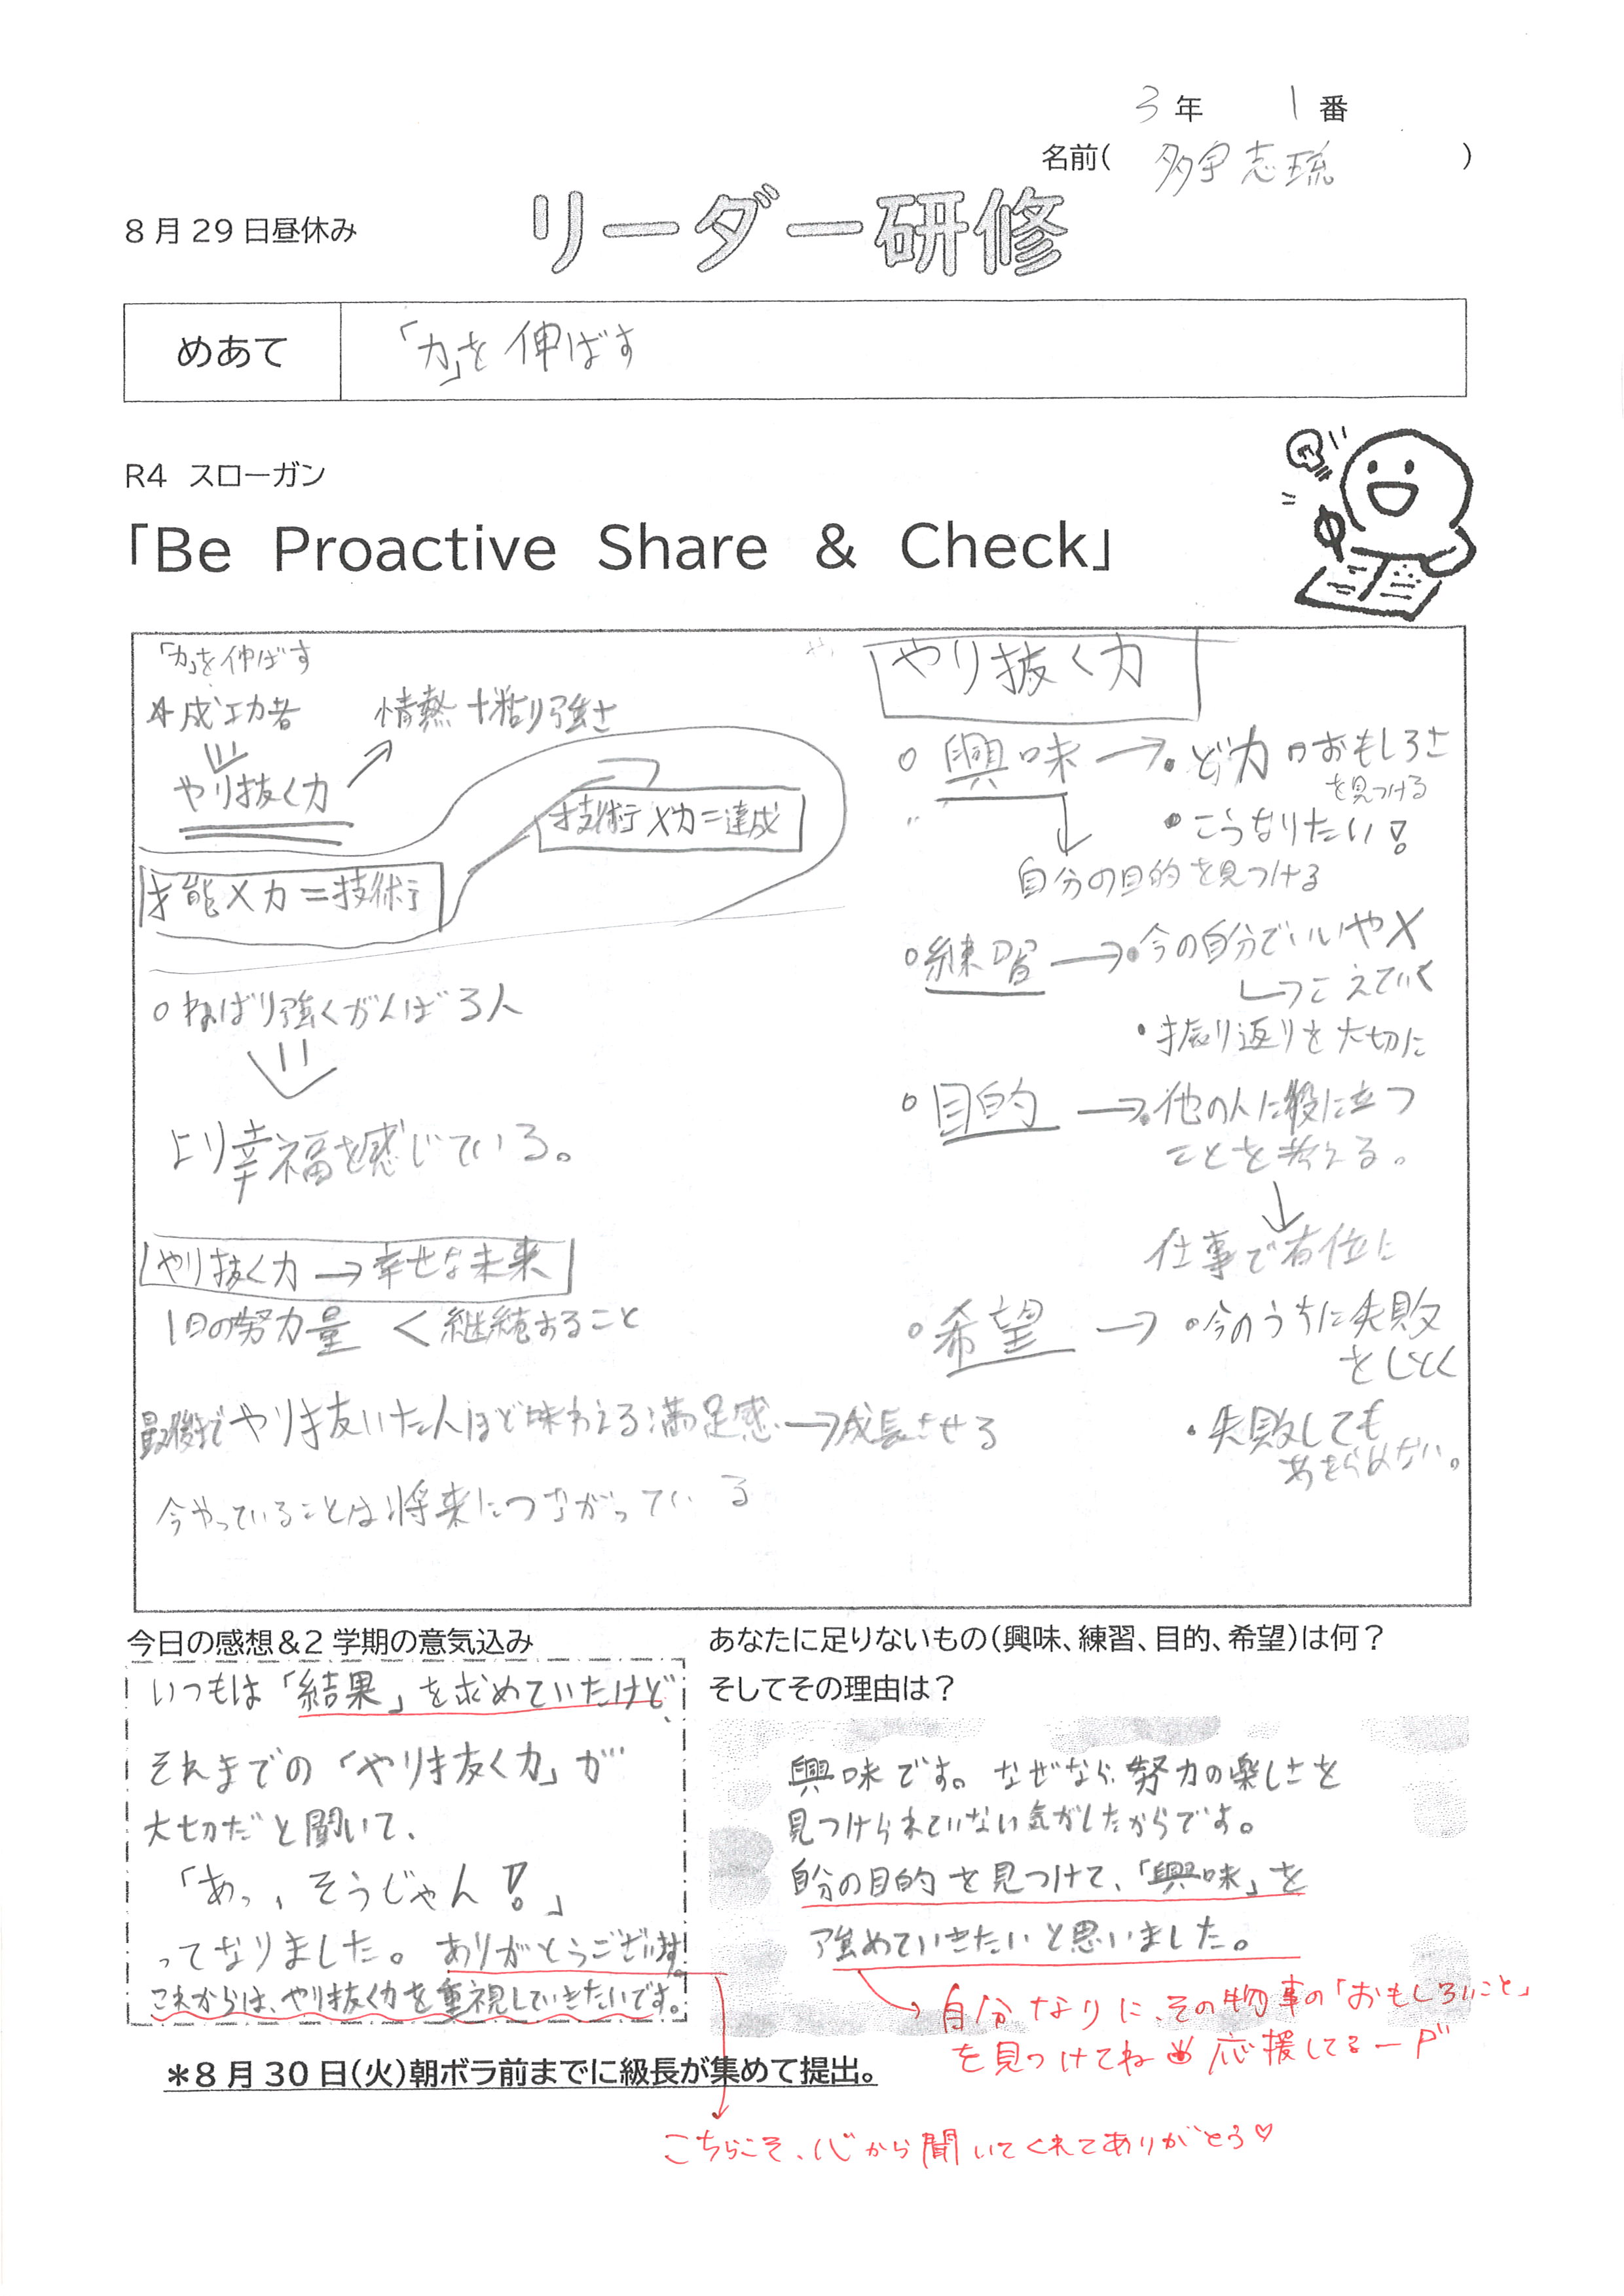 3年 1番
名前( 多宇志琉 )
8月29日昼休み
リーダー研修
めあて
「力」を伸ばす
R4 スローガン
「Be Proactive Share & Check」
「力」を伸ばす
成功者
情熱+粘り強さ
やり抜く力
技術×力=達成
才能×力=技術
○ねばり強くがんばる人
より幸福を感じている。
やり抜く力→幸せな未来
1日の努力量 < 継続すること
最後までやり抜いた人ほど味わえる満足感→成長させる
今やっていることは将来につながっている
やり抜く力
○興味→・努力のおもしろさ
を見つける
・こうなりたい!
自分の目的を見つける
○練習→・今の自分でいいや×
こえていく
・振り返りを大切に
○目的→・他の人に役に立つ
ことを考える。
仕事で有位に
○希望→・今のうちに失敗
をしとく
・失敗しても
あきらめない。
今日の感想&2学期の意気込み
いつもは「結果」を求めていたけど、
それまでの「やり抜く力」が
大切だと聞いて、
「あっ、そうじゃん!」
ってなりました。ありがとうございます。
これからは、やり抜く力を重視していきたいです。
あなたに足りないもの(興味、練習、目的、希望)は何?
そしてその理由は?
興味です。なぜなら、努力の楽しさを
見つけられていない気がしたからです。
自分の目的を見つけて、「興味」を
強めていきたいと思いました。
自分なりに、その物事の「おもしろいこと」
を見つけてね 応援してるー
*8月30日(火)朝ボラ前までに級長が集めて提出。
こちらこそ、心から聞いてくれてありがとう♡